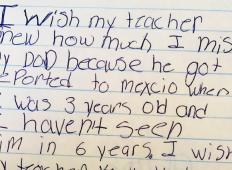 I wish my teacher
new how much I mis
y DaD because he got
ePorted to mexcio when
was 3 years old and
I havent seen
im in 6 years. I wish